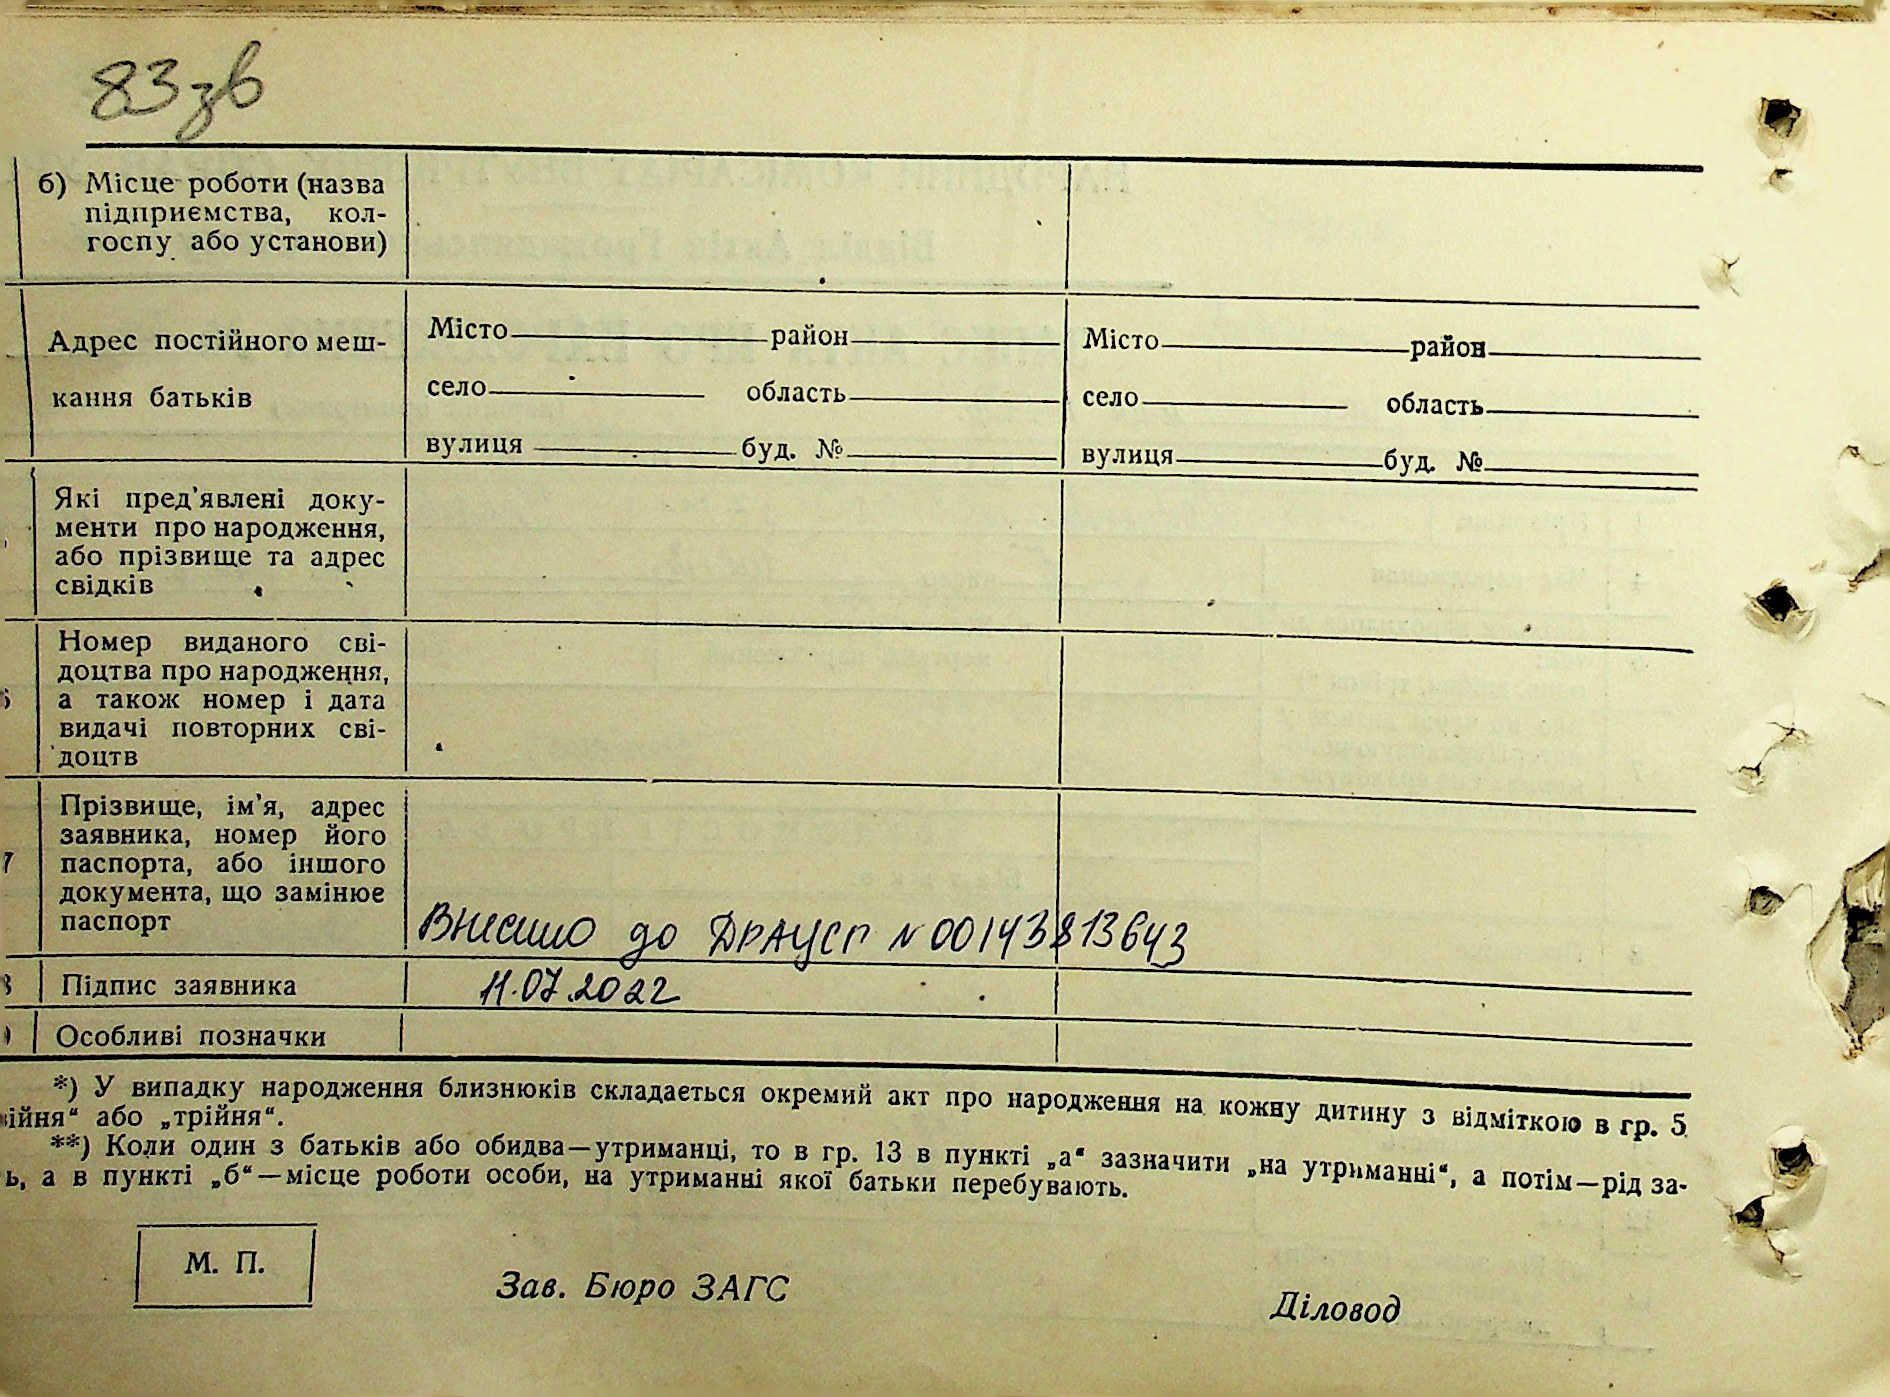 83зв
б) Місце роботи (назва
підприємства, кол-
госпу або установи)
Адрес постійного меш-
кання батьків
Місто район
село область
вулиця буд. №
Місто район
село область
вулиця буд. №
Які пред'явлені доку-
менти про народження,
або прізвище та адрес
свідків
Номер виданого сві-
доцтва про народження,
а також номер і дата
видачі повторних сві-
доцтв
7 Прізвище, ім'я, адрес
заявника, номер його
паспорта, або іншого
документа, що замінює
паспорт
Внесено до ДРАЦСГ №00143813643
Підпис заявника
11.07.2022
Особливі позначки
*) У випадку народження близнюків складається окремий акт про народження на кожну дитину з відміткою в гр. 5
ійня“ або „трійня“.
**) Коли один з батьків або обидва—утриманці, то в гр. 13 в пункті „а“ зазначити „на утриманні“, а потім—рід за-
ь, а в пункті „б“—місце роботи особи, на утриманні якої батьки перебувають.
М. П.
Зав. Бюро ЗАГС
Діловод